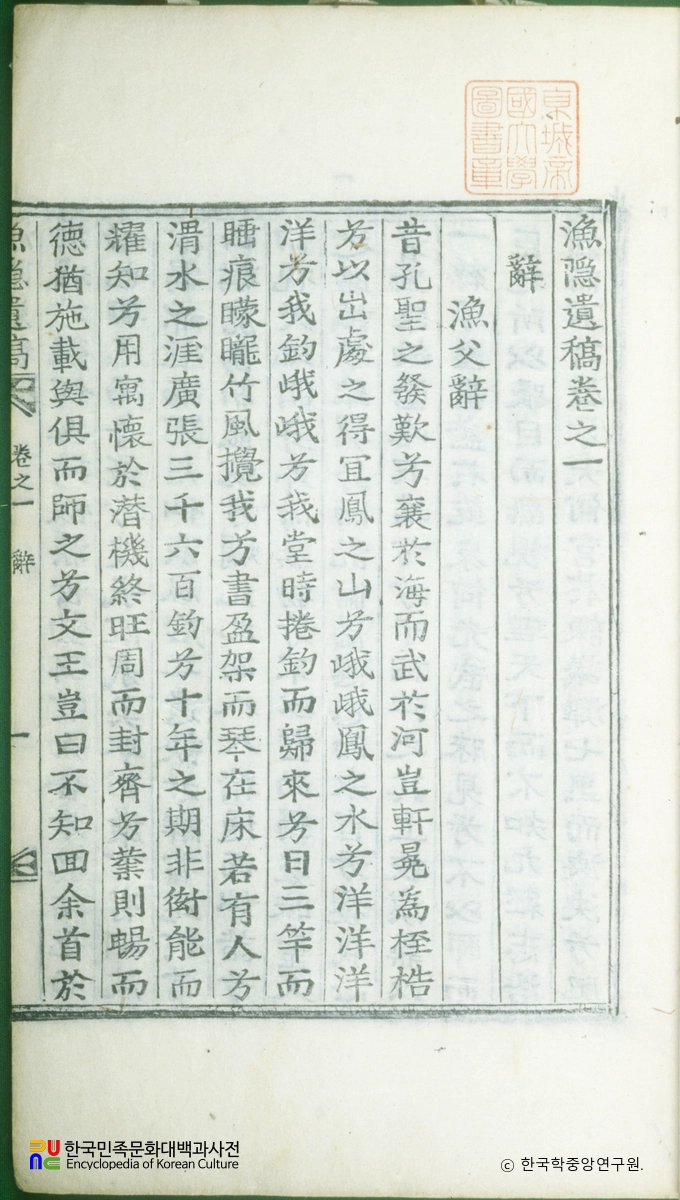 東城帝
國大學
圖書章
漁隠遺稿卷之一
辭
漁父辭
昔孔聖之發歎兮襄於海而武於河豈軒冕為桎梏
兮以出處之得冝鳳之山兮峨峨鳳之水兮洋洋洋
洋兮我釣峨峨兮我堂時捲釣而歸來兮日三竿而
睡痕矇矓竹風攪我兮書盈架而琴在床若有人兮
渭水之涯廣張三千六百釣兮十年之期非衒能而
耀知兮用寓懷於潜機終旺周而封齊兮業則暢而
德猶施載與俱而師之兮文王豈曰不知回余首於
魚隠遺稿
卷之一
辭
一
한국민족문화대백과사전
Encyclopedia of Korean Culture
ⓒ 한국학중앙연구원.